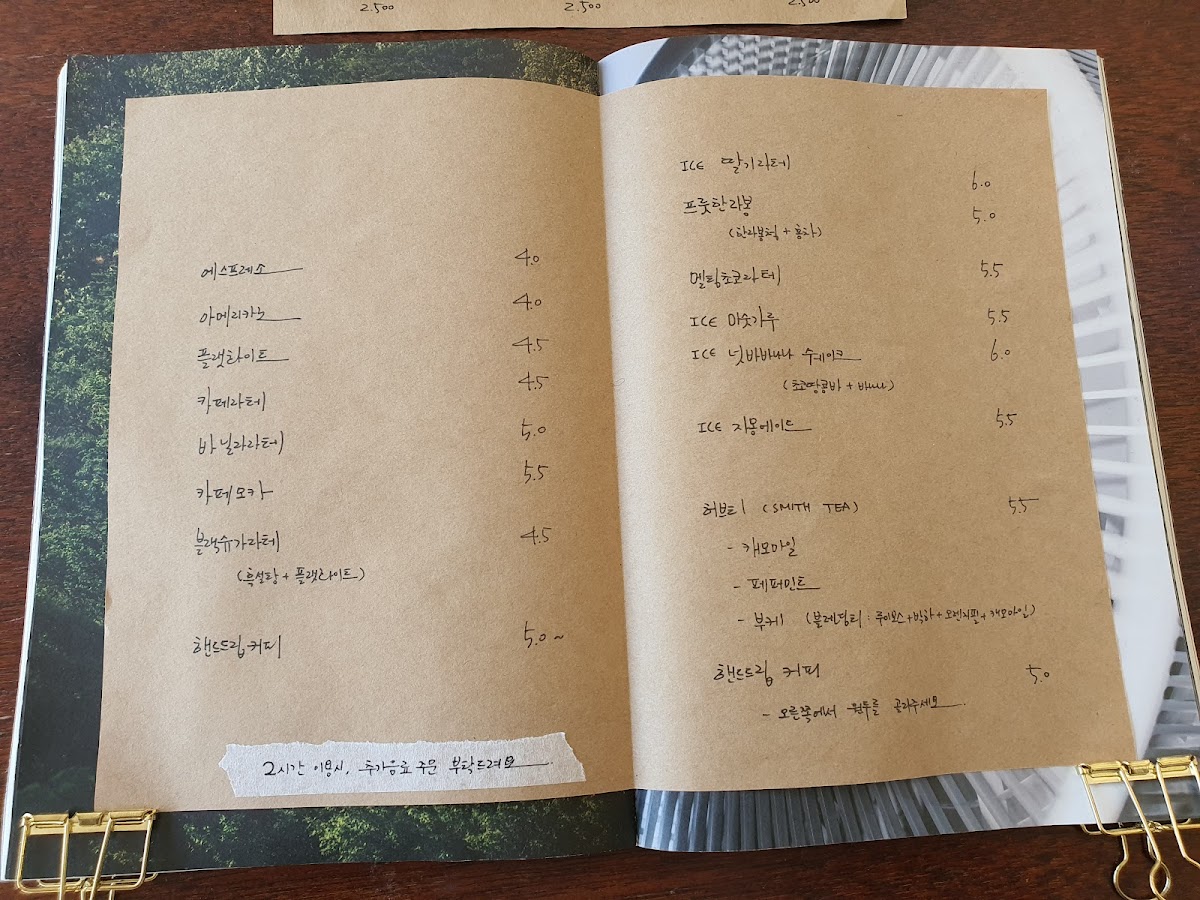 2.500 2.500 2.500
에스프레소 4.0
아메리카노 4.0
플랫화이트 4.5
카페라테 4.5
바닐라라테 5.0
카페모카 5.5
블랙슈가라테 4.5
(흑설탕 + 플랫화이트)
핸드드립커피 5.0 ~
2시간 이용시, 추가음료 주문 부탁드려요
ICE 딸기라테 6.0
프룻한라봉 5.0
(한라봉청 + 홍차)
멜팅초코라테 5.5
ICE 미숫가루 5.5
ICE 넛바바나나 쉐이크 6.0
(초코땅콩바 + 바나나)
ICE 자몽에이드 5.5
허브티 (SMITH TEA) 5.5
- 캐모마일
- 페퍼민트
- 부케 (블렌딩티 : 루이보스+박하+오렌지필+캐모마일)
핸드드립 커피 5.0
- 오른쪽에서 원두를 골라주세요